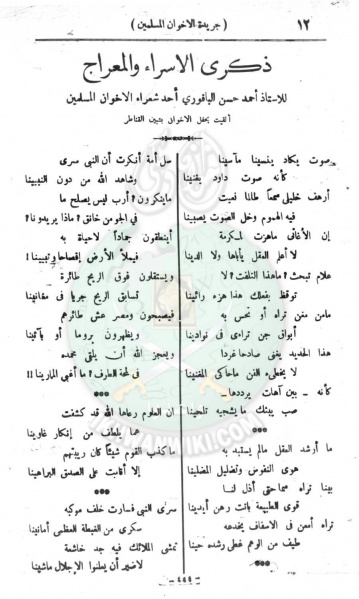 ١٢
( جريدة الاخوان المسلمين )
ذكرى الاسراء والمعراج
للاستاذ أحمد حسن الباقوري أحد شعراء الاخوان المسلمين
ألقيت بحفل الاخوان بتبين القناطر
صوت يكاد ينسينا مآسينا
كأنه صوت داود يغنينا
أرهف خليلى سمعاً طالما نعيت
فيه الهموم وخل الصوت يصبينا
إن الأغانى ماهزت لمكرمة
لا أهل العقل يأباها ولا الدينا
علام تبحث؟ ماهذا التلفت؟ لا
توقظ بفعلك هذا هزء رائينا
مامن مغن تراه أو نحس به
أبواق جن تراءى فى نوادينا
هذا الحديد يغنى صادحا غردا
لا يخطىء الفن ماحاكى المغنينا
كأنه ــ بين آهات يرددها ــ
صب يبثك مايشجيه تلحينا
***
ما أرشد العقل مالم يستبد به
هوى النفوس وتضليل المضلينا
بينا تراه سما حتى أذل لنا
قوى الطبيعة باتت رهن أيدينا
تراه أمعن فى الاسفاف يخدعه
طيف من الوهم غطى رشده حينا
سل أمة أنكرت أن النبى سرى
وشاهد الله من دون النبيينا
ماينكرون؟ أرب ليس يصلح ما
فى الجو من خانق؟ ماذا يريدونا؟
أينطقون جماداً لاحياة به
فيملأ الأرض إفصاحا وتبيينا!
ويستقلون فوق الريح طائرة
تسابق الريح جريا فى مغانينا
فيصبحون ومصر عش طائرهم
ويظهرون بروما أو بأثينا
ويعجز الله أن يلقى محمده
فى لمحة العارف؟ ما أغبى المارينا!!
***
ان العلوم رعاها الله قد كشفت
هما يلطف من إنكار غاوينا
ماكذب القوم شيئا كان ريبهم
إلا أقامت على الصدق البراهينا
***
سرى النبى فسارت خلف موكبه
سكرى من الغبطة العظمى أمانينا
تمشى الملائك فيه جد خاشعة
لاضير أن يعلنوا الاجلال ماشينا
ـ ٤٤٤ ـ
IKHWANWIKI.COM